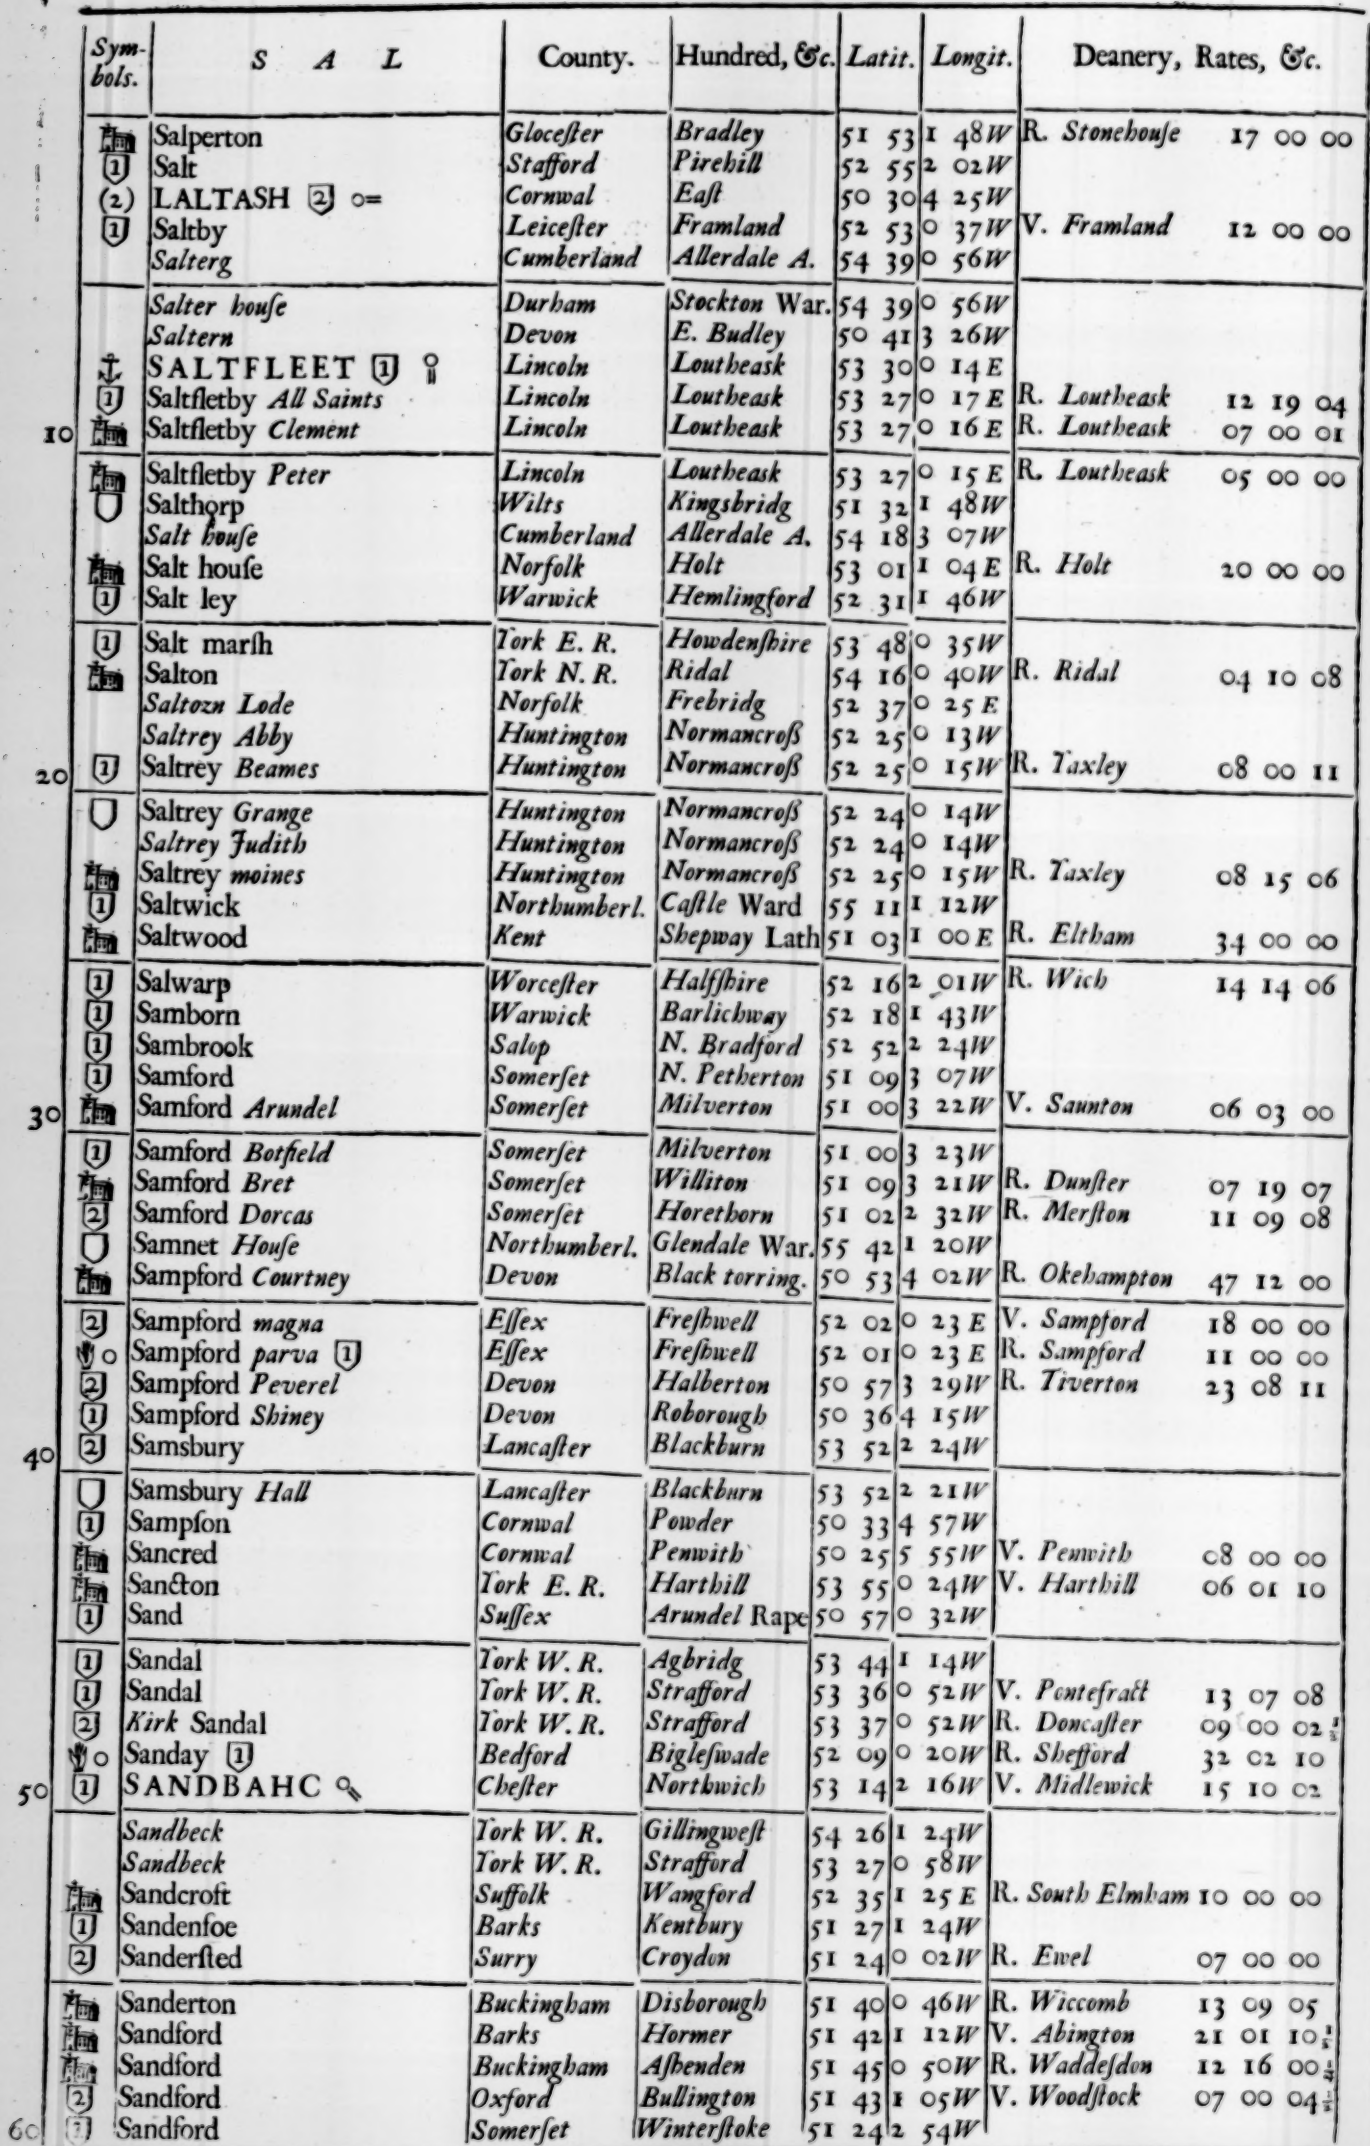 Sym-bols. S A L County. Hundred, &c. Latit. Longit. Deanery, Rates, &c.
Salperton Gloceſter Bradley 51 53 1 48 W R. Stonehouſe 17 00 00
1 Salt Stafford Pirehill 52 55 2 02 W
(2) LALTASH 2 Cornwal Eaſt 50 30 4 25 W
1 Saltby Leiceſter Framland 52 53 0 37 W V. Framland 12 00 00
Salterg Cumberland Allerdale A. 54 39 0 56 W
Salter houſe Durham Stockton War. 54 39 0 56 W
Saltern Devon E. Budley 50 41 3 26 W
SALTFLEET 1 Lincoln Loutheask 53 30 0 14 E
1 Saltfletby All Saints Lincoln Loutheask 53 27 0 17 E R. Loutheask 12 19 04
10 Saltfletby Clement Lincoln Loutheask 53 27 0 16 E R. Loutheask 07 00 01
Saltfletby Peter Lincoln Loutheask 53 27 0 15 E R. Loutheask 05 00 00
Salthorp Wilts Kingsbridg 51 32 1 48 W
Salt houſe Cumberland Allerdale A. 54 18 3 07 W
Salt houſe Norfolk Holt 53 01 1 04 E R. Holt 20 00 00
1 Salt ley Warwick Hemlingford 52 31 1 46 W
1 Salt marſh York E. R. Howdenſhire 53 48 0 35 W
Salton York N. R. Ridal 54 16 0 40 W R. Ridal 04 10 08
Saltozn Lode Norfolk Frebridg 52 37 0 25 E
Saltrey Abby Huntington Normancroß 52 25 0 13 W
20 1 Saltrey Beames Huntington Normancroß 52 25 0 15 W R. Yaxley 08 00 11
Saltrey Grange Huntington Normancroß 52 24 0 14 W
Saltrey Judith Huntington Normancroß 52 24 0 14 W
Saltrey moines Huntington Normancroß 52 25 0 15 W R. Yaxley 08 15 06
1 Saltwick Northumberl. Caſtle Ward 55 11 1 12 W
Saltwood Kent Shepway Lath 51 03 1 00 E R. Eltham 34 00 00
1 Salwarp Worceſter Halfſhire 52 16 2 01 W R. Wich 14 14 06
1 Samborn Warwick Barlichway 52 18 1 43 W
1 Sambrook Salop N. Bradford 52 52 2 24 W
1 Samford Somerſet N. Petherton 51 09 3 07 W
30 Samford Arundel Somerſet Milverton 51 00 3 22 W V. Saunton 06 03 00
1 Samford Botfield Somerſet Milverton 51 00 3 23 W
Samford Bret Somerſet Williton 51 09 3 21 W R. Dunſter 07 19 07
2 Samford Dorcas Somerſet Horethorn 51 02 2 32 W R. Merſton 11 09 08
Samnet Houſe Northumberl. Glendale War. 55 42 1 20 W
Sampford Courtney Devon Black torring. 50 53 4 02 W R. Okehampton 47 12 00
2 Sampford magna Eſſex Freſhwell 52 02 0 23 E V. Sampford 18 00 00
Sampford parva 1 Eſſex Freſhwell 52 01 0 23 E R. Sampford 11 00 00
2 Sampford Peverel Devon Halberton 50 57 3 29 W R. Tiverton 23 08 11
1 Sampford Shiney Devon Roborough 50 36 4 15 W
40 2 Samsbury Lancaſter Blackburn 53 52 2 24 W
Samsbury Hall Lancaſter Blackburn 53 52 2 21 W
1 Sampſon Cornwal Powder 50 33 4 57 W
Sancred Cornwal Penwith 50 25 5 55 W V. Penwith 08 00 00
Sancton York E. R. Harthill 53 55 0 24 W V. Harthill 06 01 10
1 Sand Suſſex Arundel Rape 50 57 0 32 W
1 Sandal York W. R. Agbridg 53 44 1 14 W
1 Sandal York W. R. Strafford 53 36 0 52 W V. Pontefract 13 07 08
2 Kirk Sandal York W. R. Strafford 53 37 0 52 W R. Doncaſter 09 00 02 ½
Sanday 1 Bedford Bigleſwade 52 09 0 20 W R. Shefford 32 02 10
50 1 SANDBAHC Cheſter Northwich 53 14 2 16 W V. Midlewick 15 10 02
Sandbeck York W. R. Gillingweſt 54 26 1 24 W
Sandbeck York W. R. Strafford 53 27 0 58 W
Sandcroft Suffolk Wangford 52 35 1 25 E R. South Elmham 10 00 00
1 Sandenfoe Barks Kentbury 51 27 1 24 W
2 Sanderſted Surry Croydon 51 24 0 02 W R. Ewel 07 00 00
Sanderton Buckingham Disborough 51 40 0 46 W R. Wiccomb 13 09 05
Sandford Barks Hormer 51 42 1 12 W V. Abington 21 01 10 ½
Sandford Buckingham Aſhenden 51 45 0 50 W R. Waddeſdon 12 16 00
2 Sandford Oxford Bullington 51 43 1 05 W V. Woodſtock 07 00 04 ½
60 Sandford Somerſet Winterſtoke 51 24 2 54 W